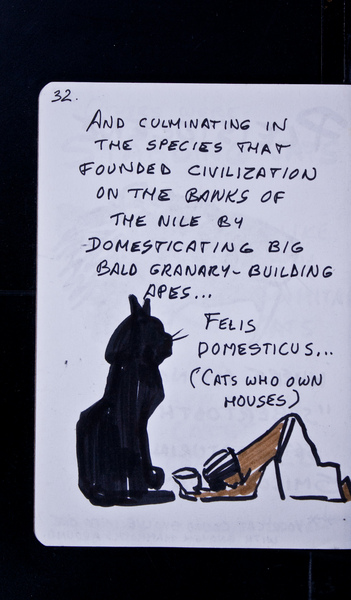 32.
AND CULMINATING IN
THE SPECIES THAT
FOUNDED CIVILIZATION
ON THE BANKS OF
THE NILE BY
DOMESTICATING BIG
BALD GRANARY-BUILDING
APES...
FELIS
DOMESTICUS...
(CATS WHO OWN
HOUSES)